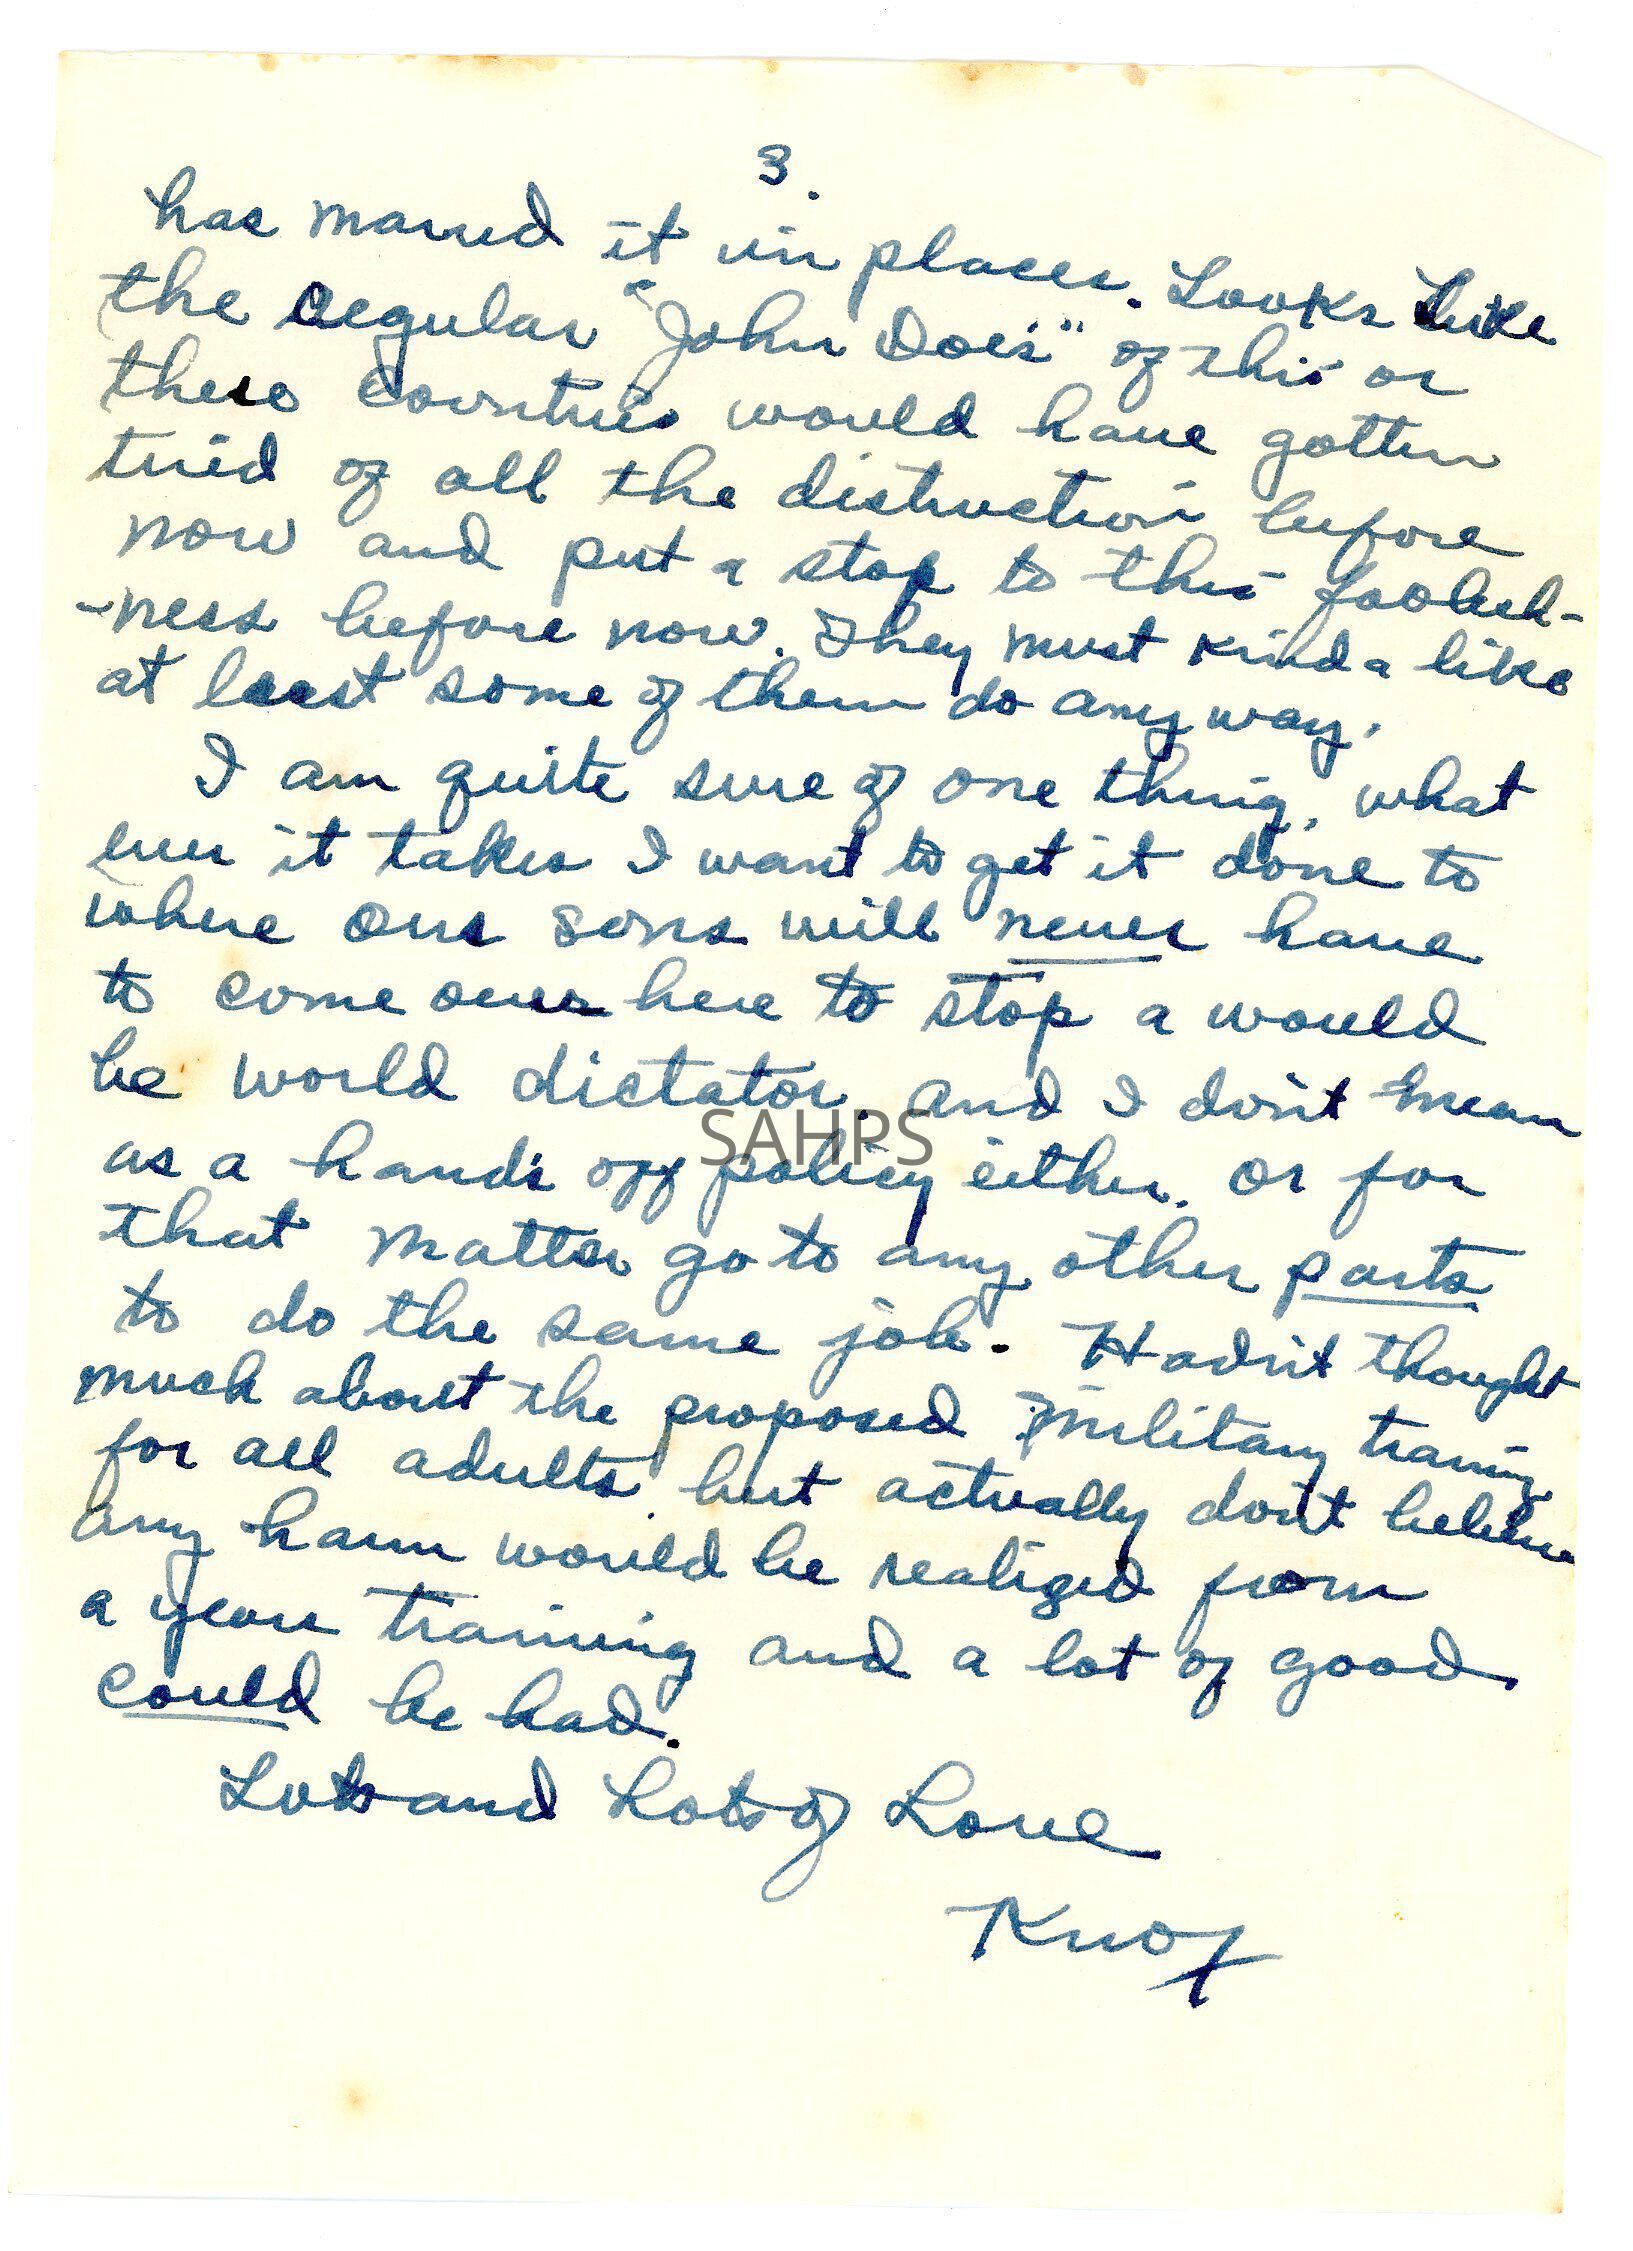 3.
has marred it in places. Looks like
the regular "John Doe's" of this or
these countries would have gotten
tired of all the distruction before
now and put a stop to this foolish-
-ness before now. They must kinda like
at least some of them do any way.
I am quite sure of one thing, what
ever it takes I want to get it done to
where our sons will never have
to come over here to stop a would
be world dictator. and I don't mean
SAHPS
as a hands off policy either. or for
that matter go to any other parts
to do the same job. Hadn't thought
much about the proposed military training
for all adults, but actually don't believe
any harm would be realized from
a years training and a lot of good
could be had.
Lots and Lots of Love
Knox